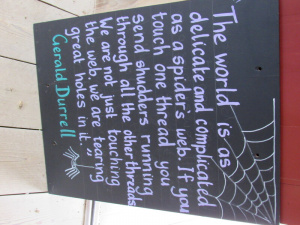 The world is as
delicate and complicated
as a spider's web. If you
touch one thread you
send shudders running
through all the other threads
We are not just touching
the web, we are tearing
great holes in it."
Gerald Durrell